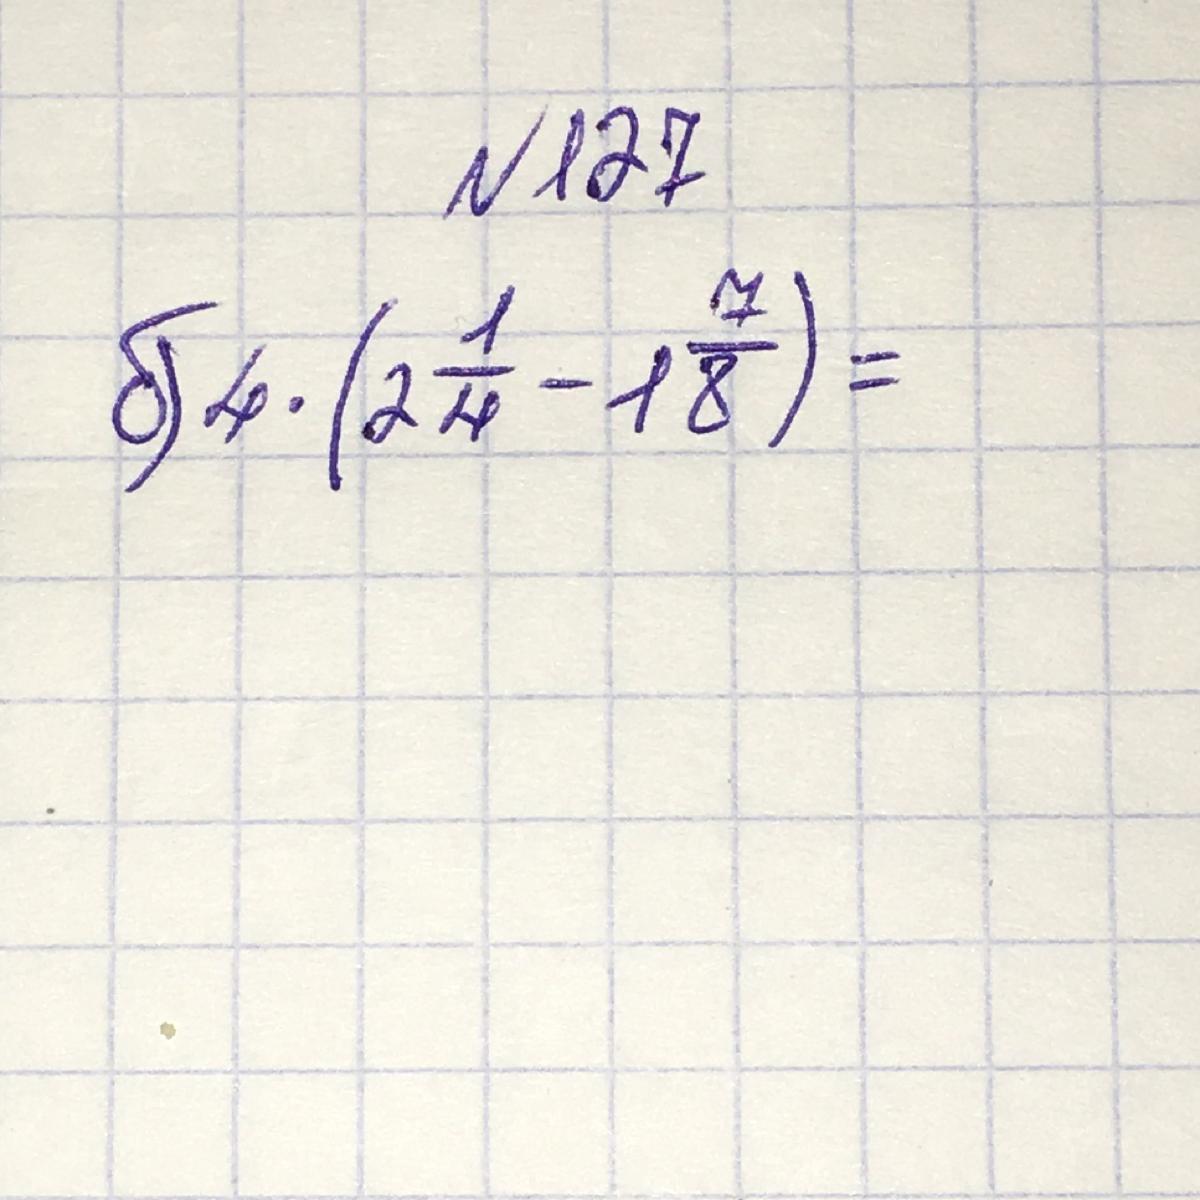 № 127
б) 4 · (2 1/4 − 1 7/8) =